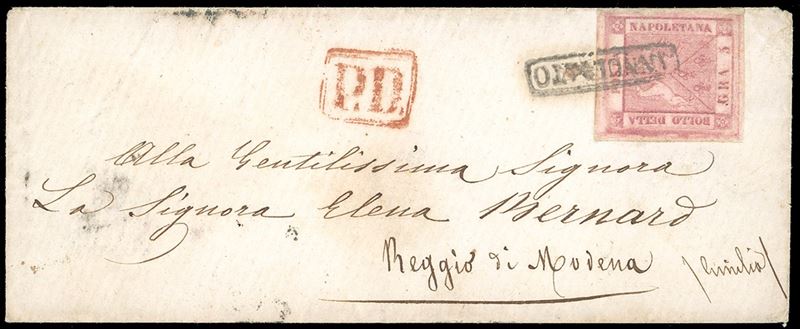 NAPOLETANA
GRA 5
BOLLO DELLA
ANNULLATO
P.D.
Alla Gentilissima Signora
La Signora Elena Bernard
Reggio di Modena